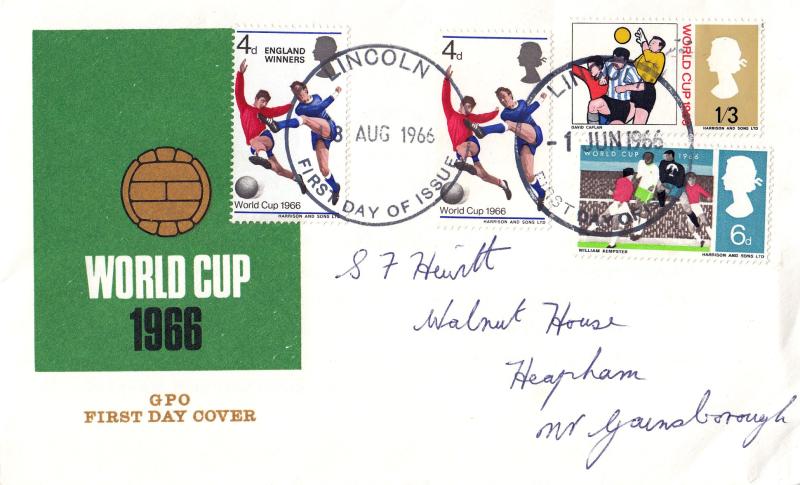 4d
ENGLAND
WINNERS
World Cup 1966
HARRISON AND SONS LTD
LINCOLN
8 AUG 1966
FIRST DAY OF ISSUE
4d
World Cup 1966
HARRISON AND SONS LTD
WORLD CUP 1966
1/3
DAVID CAPLAN
HARRISON AND SONS LTD
-1 JUN 1966
WORLD CUP 1966
6d
WILLIAM KEMPSTER
HARRISON AND SONS LTD
WORLD CUP
1966
GPO
FIRST DAY COVER
S F Hewitt
Walnut House
Heapham
nr Gainsborough